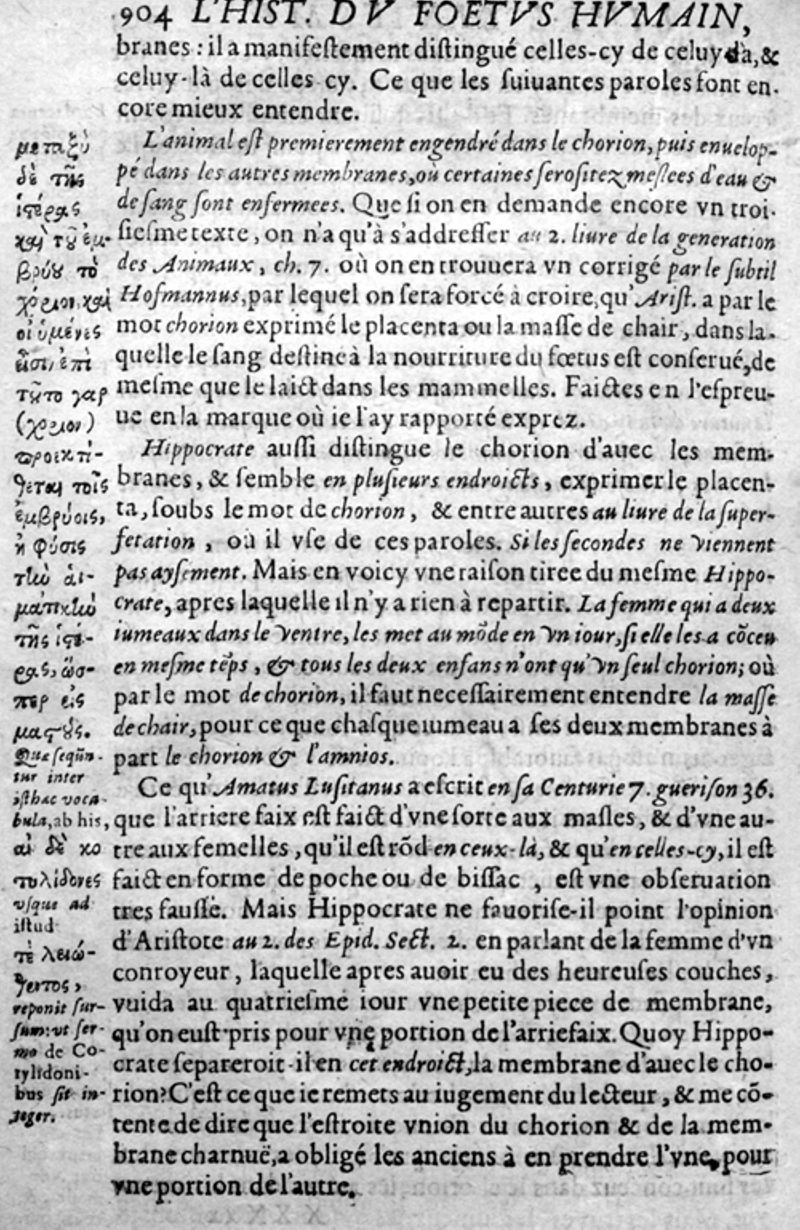 904 L'HIST. DV FOETVS HVMAIN,
branes : il a manifeſtement diſtingué celles-cy de celuy-là, &
celuy-là de celles cy. Ce que les ſuiuantes paroles font en-
core mieux entendre.
L'animal eſt premierement engendré dans le chorion, puis enuelop-
pé dans les autres membranes, où certaines ſeroſitez meſlees d'eau &
de ſang ſont enfermees. Que ſi on en demande encore vn troi-
ſieſme texte, on n'a qu'à s'addreſſer au 2. liure de la generation
des Animaux, ch. 7. où on en trouuera vn corrigé par le ſubtil
Hofmannus, par lequel on ſera forcé à croire, qu'Ariſt. a par le
mot chorion exprimé le placenta ou la maſſe de chair, dans la-
quelle le ſang deſtiné à la nourriture du fœtus eſt conſerué, de
meſme que le laict dans les mammelles. Faictes en l'eſpreu-
ue en la marque où ie l'ay rapporté exprez.
Hippocrate auſſi diſtingue le chorion d'auec les mem-
branes, & ſemble en pluſieurs endroicts, exprimer le placen-
ta, ſoubs le mot de chorion, & entre autres au liure de la ſuper-
fetation, où il vſe de ces paroles. Si les ſecondes ne viennent
pas ayſement. Mais en voicy vne raiſon tiree du meſme Hippo-
crate, apres laquelle il n'y a rien à repartir. La femme qui a deux
iumeaux dans le ventre, les met au mõde en vn iour, ſi elle les a cõceu
en meſme tẽps, & tous les deux enfans n'ont qu'vn ſeul chorion; où
par le mot de chorion, il faut neceſſairement entendre la maſſe
de chair, pour ce que chaſque iumeau a ſes deux membranes à
part le chorion & l'amnios.
Ce qu'Amatus Luſitanus a eſcrit en ſa Centurie 7. gueriſon 36.
que l'arriere faix eſt faict d'vne ſorte aux maſles, & d'vne au-
tre aux femelles, qu'il eſt rõd en ceux-là, & qu'en celles-cy, il eſt
faict en forme de poche ou de biſſac, eſt vne obſeruation
tres fauſſe. Mais Hippocrate ne fauoriſe-il point l'opinion
d'Ariſtote au 2. des Epid. Sect. 2. en parlant de la femme d'vn
conroyeur, laquelle apres auoir eu des heureuſes couches,
vuida au quatrieſme iour vne petite piece de membrane,
qu'on euſt pris pour vne portion de l'arriefaix. Quoy Hippo-
crate ſepareroit-il en cet endroict, la membrane d'auec le cho-
rion? C'eſt ce que ie remets au iugement du lecteur, & me cõ-
tente de dire que l'eſtroite vnion du chorion & de la mem-
brane charnuë, a obligé les anciens à en prendre l'vne, pour
vne portion de l'autre.
μεταξὺ
δὲ τῆς
ὑςέρας
καὶ τοῦ ἐμ-
βρύου τὸ
χόριον, καὶ
οἱ ὑμένες
εἰσι, ἐπὶ
τοῦτο γαρ
(χοριον)
προεκτί-
θεται τοῖς
ἐμβρύοις,
ἡ φύσις
τὴν αἱ-
ματικὴν
τῆς ὑςέ-
ρας, ὥσ-
περ εἰς
μαςούς.
Quæ ſequũn-
tur inter
iſthæc voca-
bula, ab his,
αἱ δὲ κο
τυλιδονες
vſque ad
iſtud
τὲ λειώ-
θεντος,
reponit ſur-
ſum: vt ſer-
mo de Co-
tylidoni-
bus ſit in-
teger.